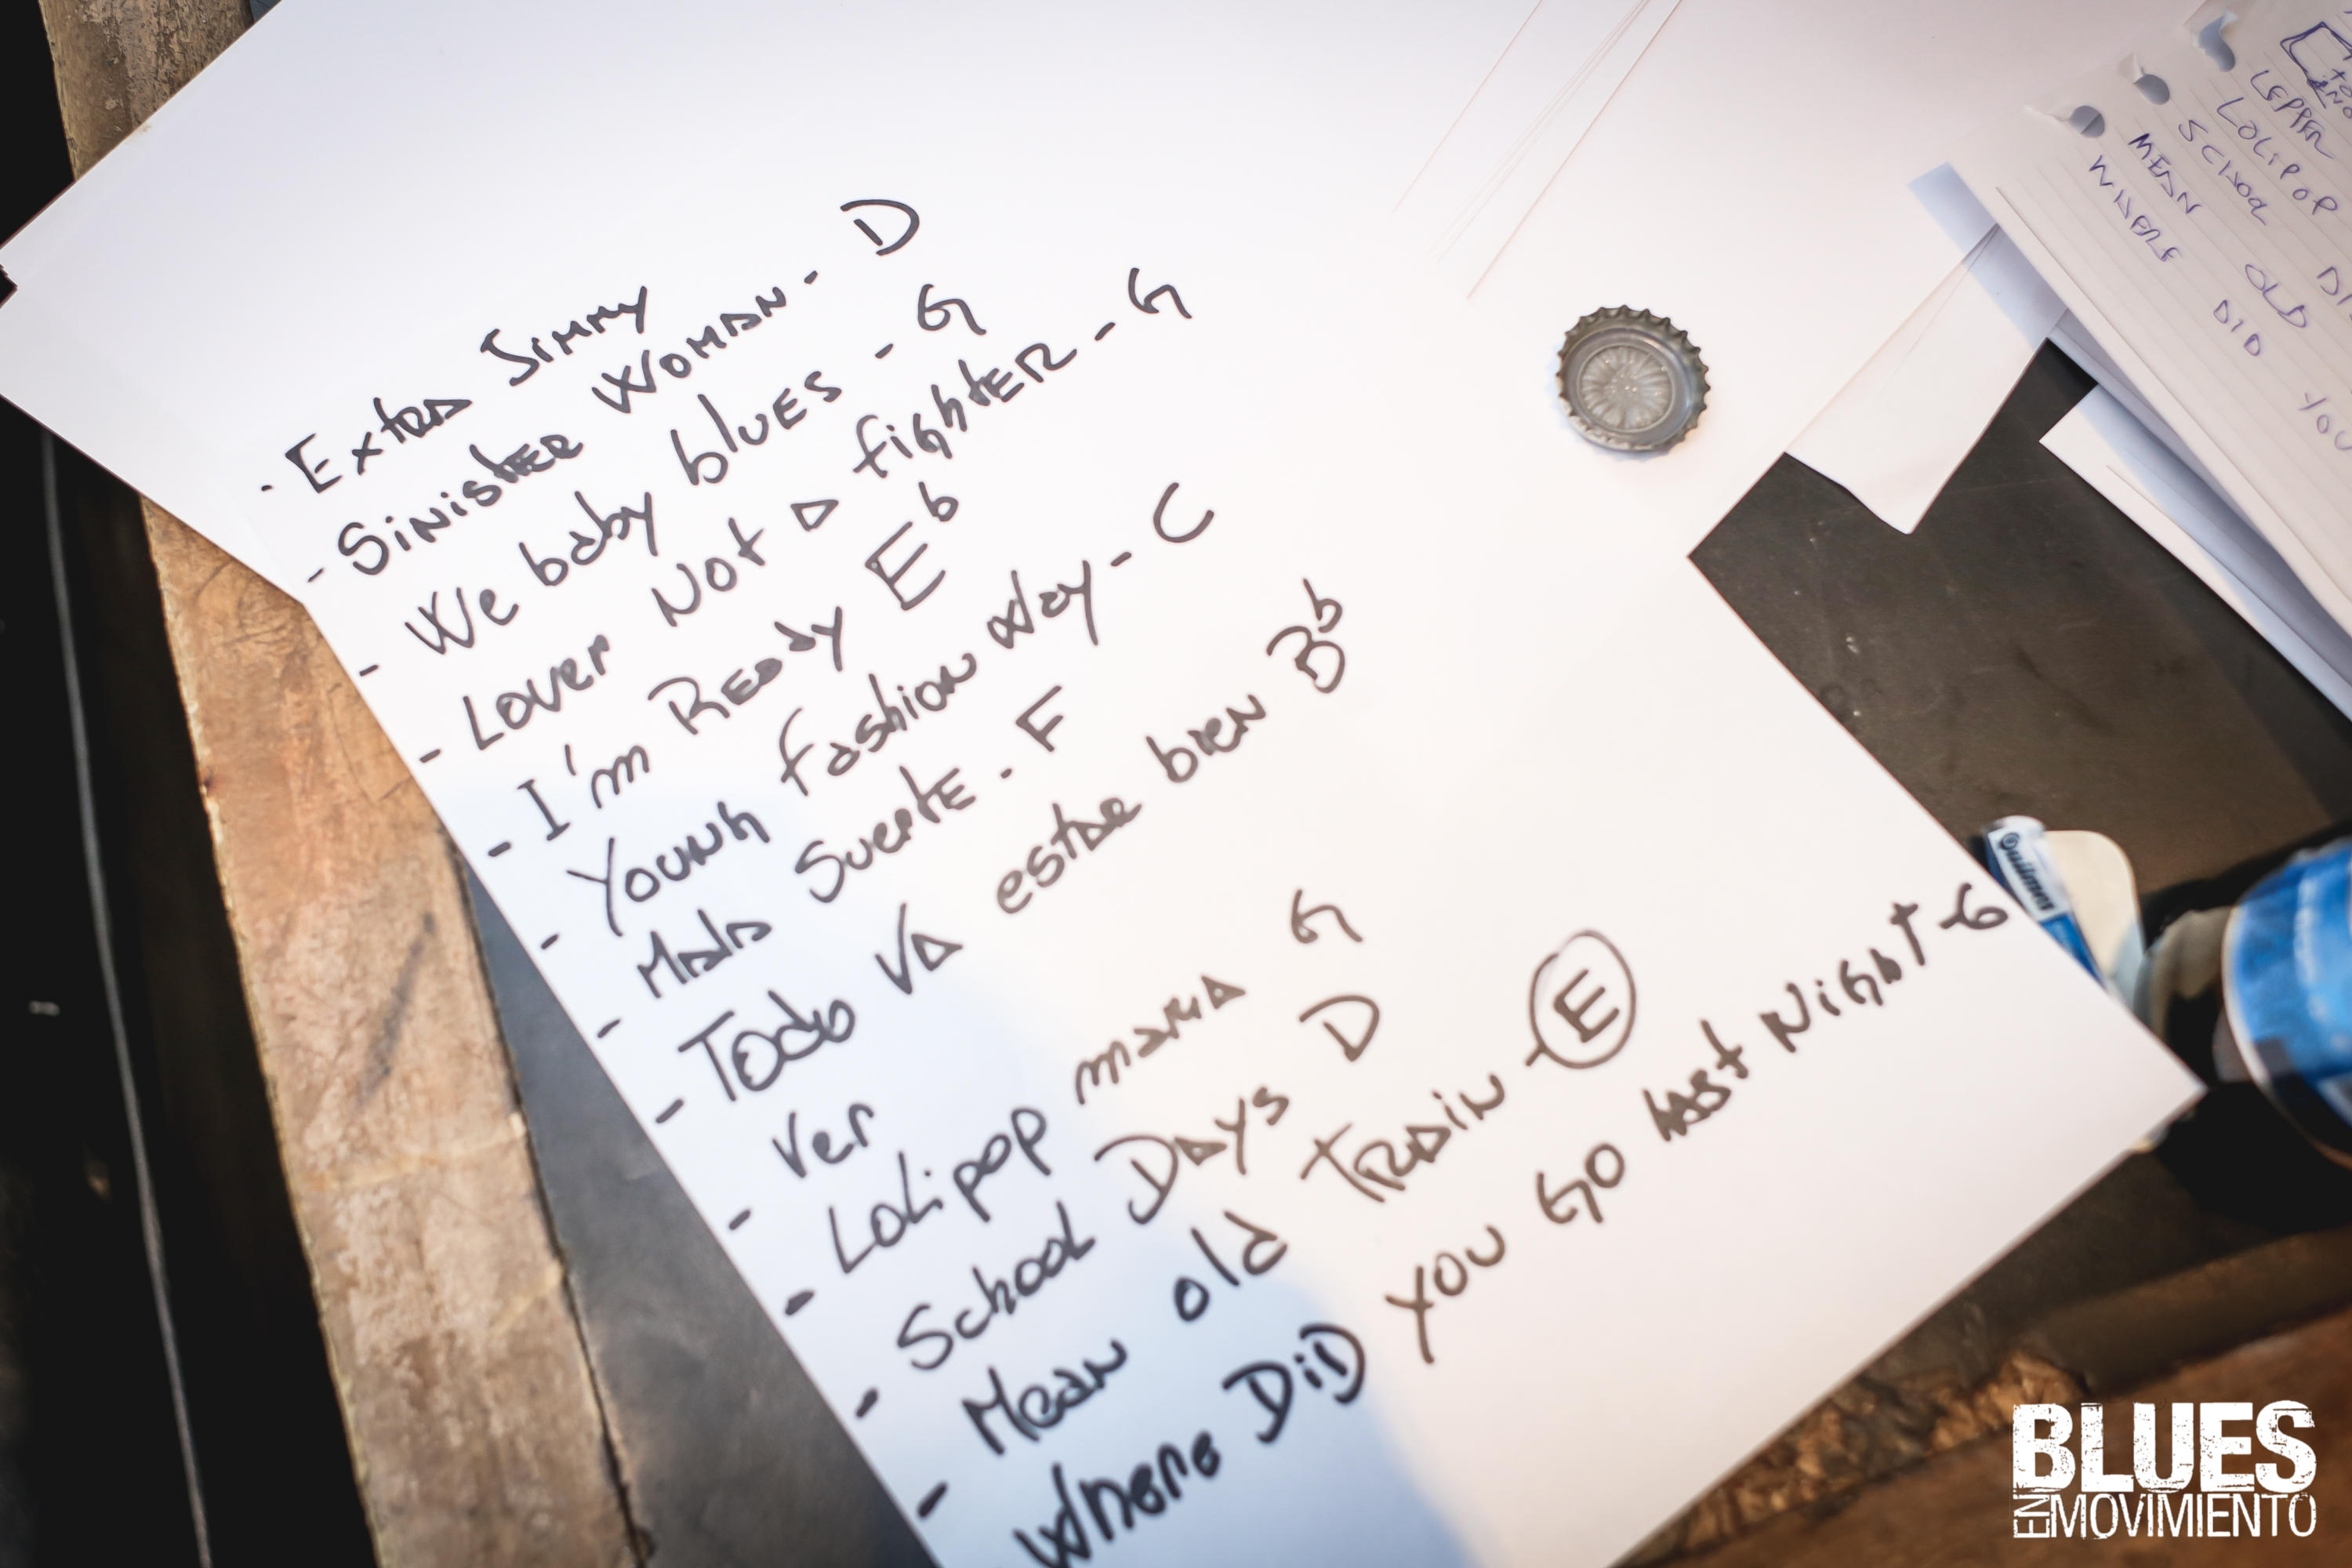 · Extra Jimmy
- Sinister Woman - D
- We baby blues - G
- Lover Not a fighter - G
- I'm Ready Eb
- Young fashion way - C
- Mala Suerte - F
- Todo va estar bien Bb
- Ver
- Lolipop mama G
- School Days D
- Mean old Train - E
Where DiD you Go last Night - G
LOLIPOP
SCHOOL
MEAN OLD
WHERE DID YOU
Quilmes
BLUES
EN MOVIMIENTO